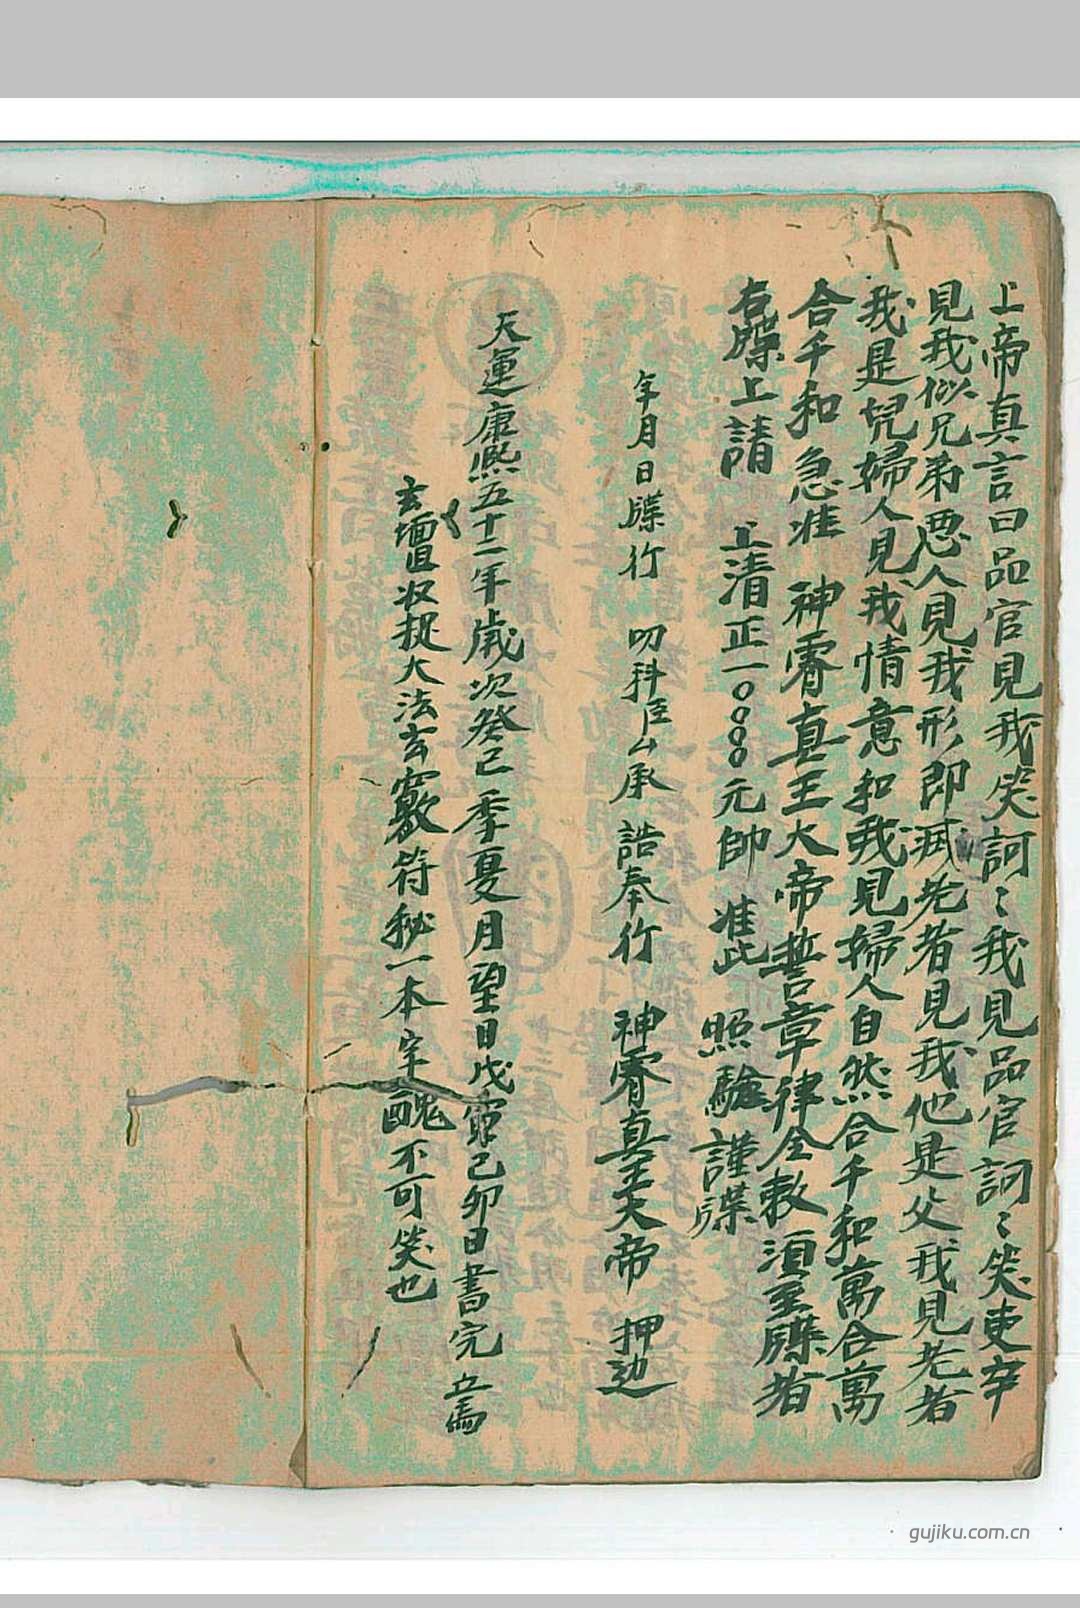 上帝真言曰品官見我笑訶〻我見品官訶〻笑吏卒
見我似兄弟惡人見我形即滅老者見我他是父我見老者
我是兒婦人見我情意和我見婦人自然合千和萬合萬
合千和急准 神霄真王大帝誓章律令敕須至牒者
右牒上請 上清正一〇〇〇元帥 准此 照驗謹牒
年月日牒行 叨科臣厶承 誥奉行 神霄真王大帝 押
天運康熙五十二年歲次癸巳季夏月望日戊寅己卯日書完
玄壇收捉大法玄竅符秘一本字醜不可笑也
gujiku.com.cn